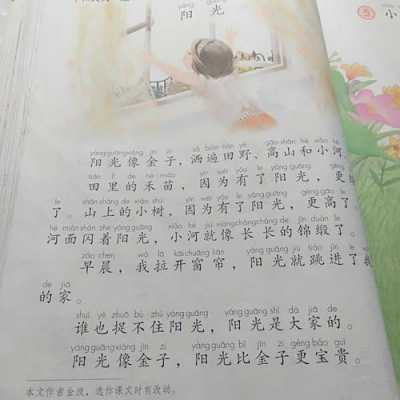 yáng guāng
阳光
yáng guāng xiàng jīn zi sǎ biàn tián yě gāo shān hé xiǎo hé
阳光像金子，洒遍田野、高山和小河
tián lǐ de hé miáo yīn wèi yǒu le yáng guāng gèng
田里的禾苗，因为有了阳光，更
le shān shàng de xiǎo shù yīn wèi yǒu le yáng guāng gèng gāo le
了。山上的小树，因为有了阳光，更高了
hé miàn shǎn zhe yáng guāng xiǎo hé jiù xiàng cháng cháng de jǐn duàn le
河面闪着阳光，小河就像长长的锦缎了。
zǎo chen wǒ lā kāi chuāng lián yáng guāng jiù tiào jìn le
早晨，我拉开窗帘，阳光就跳进了
de jiā
的家。
shuí yě zhuō bú zhù yáng guāng yáng guāng shì dà jiā de
谁也捉不住阳光，阳光是大家的。
yáng guāng xiàng jīn zi yáng guāng bǐ jīn zi gèng bǎo guì
阳光像金子，阳光比金子更宝贵。
本文作者金波，选作课文时有改动。
5 小